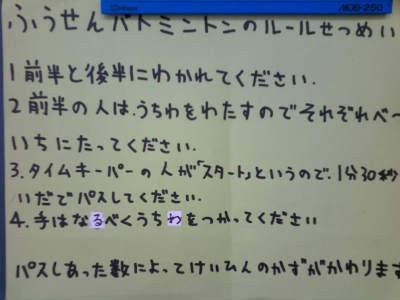 MOB-250
ふうせんバトミントンのルールせつめい
1 前半と後半にわかれてください.
2 前半の人は、うちわをわたすのでそれぞれペー
いちにたってください.
3.タイムキーパーの人が「スタート」というので、1分30秒
いだでパスしてください.
4.手はなるべくうちわをつかってください
パスしあった数によってけいひんのかずがかわります